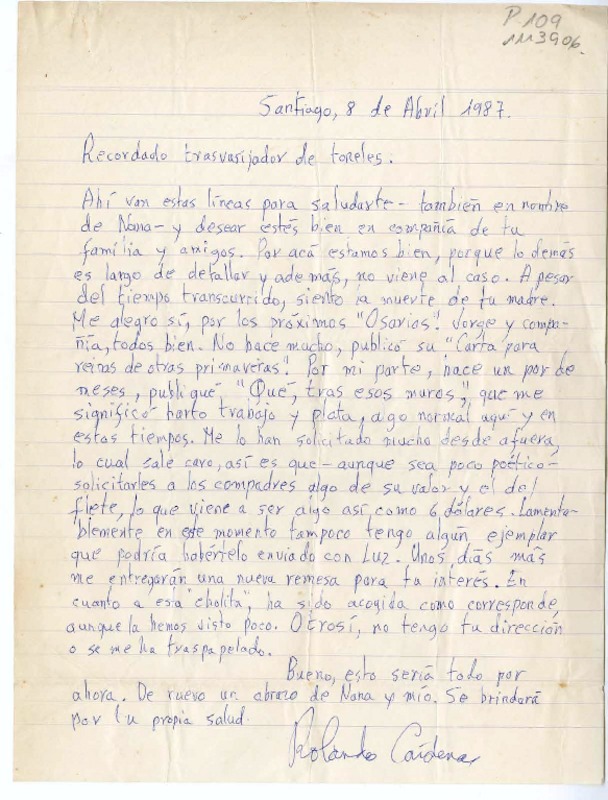 P.109
1113906.
Santiago, 8 de Abril 1987.
Recordado trasvasijador de toneles.
Ahí van estas líneas para saludarte - también en nombre
de Nana - y desear estés bien en compañía de tu
familia y amigos. Por acá estamos bien, porque lo demás
es largo de detallar y además, no viene al caso. A pesar
del tiempo transcurrido, siento la muerte de tu madre.
Me alegro sí, por los próximos "Osarios". Jorge y compa-
ñía, todos bien. No hace mucho, publicó su "Carta para
reinas de otras primaveras". Por mi parte, hace un par de
meses, publiqué "Qué, tras esos muros", que me
significó harto trabajo y plata, algo normal aquí y en
estos tiempos. Me lo han solicitado mucho desde afuera,
lo cual sale caro, así es que - aunque sea poco poético -
solicitarles a los compadres algo de su valor y el del
flete, lo que viene a ser algo así como 6 dólares. Lamenta-
blemente en este momento tampoco tengo algún ejemplar
que podría habértelo enviado con Luz. Unos días más
me entregarán una nueva remesa para tu interés. En
cuanto a esta "cholita", ha sido acogida como corresponde,
aunque la hemos visto poco. Otrosí, no tengo tu dirección
o se me ha traspapelado.
Bueno, esto sería todo por
ahora. De nuevo un abrazo de Nana y mío. Se brindará
por tu propia salud.
Rolando Cárdenas